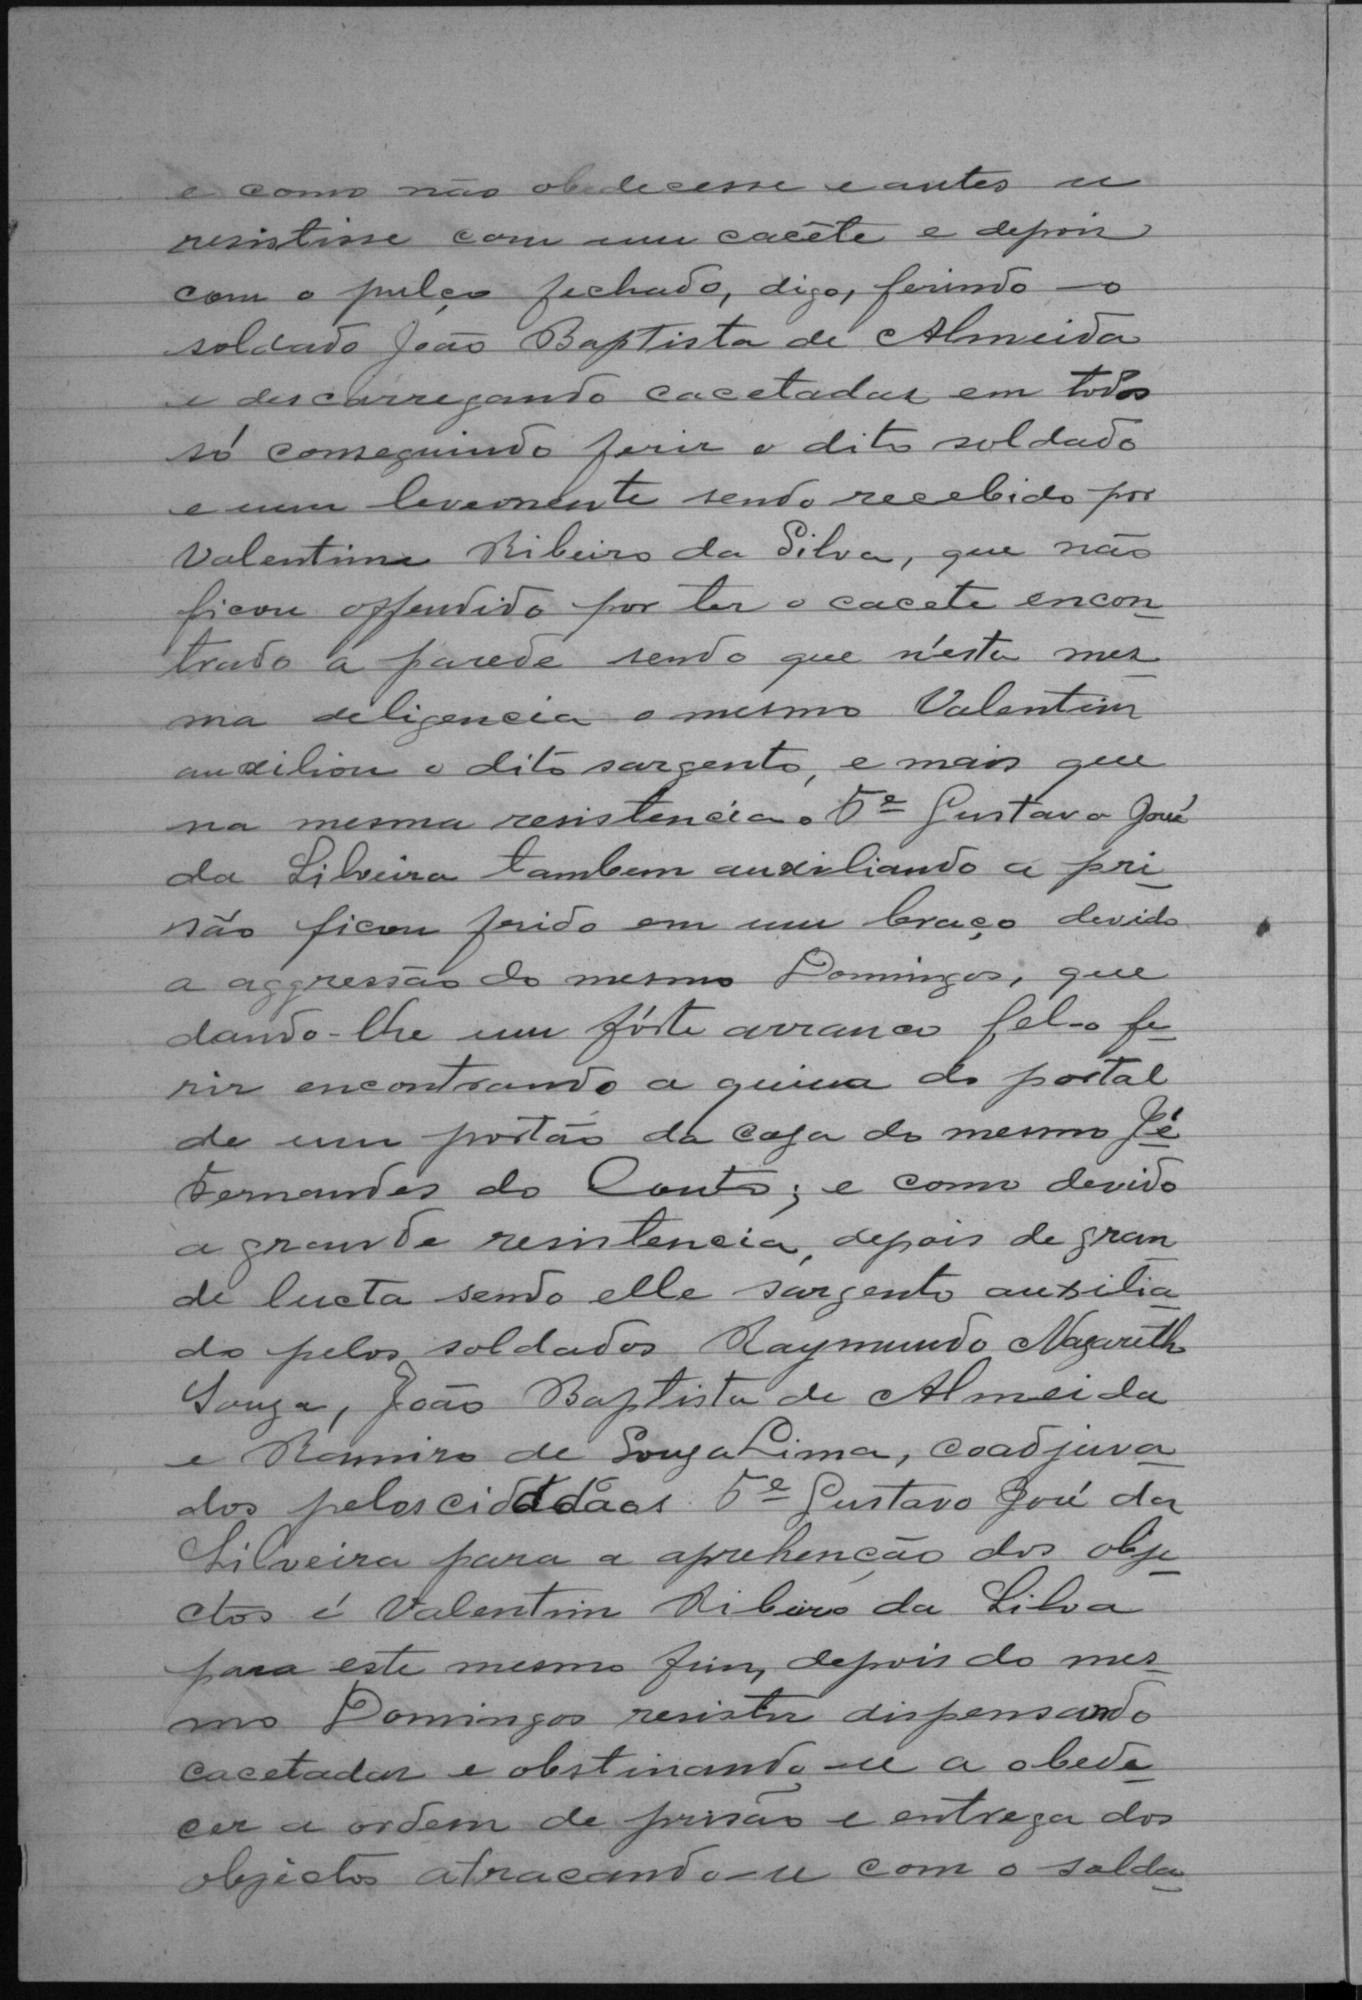 e como não obedecesse e antes se
resistisse com um cacête e depois
com o pulço fechado, digo, ferindo -o
soldado João Baptista de Almeida
e descarregando cacetadas em todos
só conseguindo ferir o dito soldado
e um levemente sendo recebido por
Valentim Ribeiro da Silva, que não
ficou offendido por ter o cacete encon_
trado á parede sendo que n'esta mes_
ma deligencia o mesmo Valentim
auxiliou o dito sargento, e mais que
na mesma resistencia o Tᵉ Gustavo José
da Silveira tambem auxiliando a pri_
são ficou ferido em um braço devido
a aggressão do mesmo Domingos, que
dando-lhe um fórte arranco fel-o fe_
rir encontrando a quina do portal
de um portão da casa do mesmo Jé
Fernandes do Couto; e como devido
a grande resistencia, depois de gran
de lucta sendo elle sargento auxilia_
do pelos soldados Raymundo Nazareth
Souza, João Baptista de Almeida
e Ramiro de Souza Lima, coadjuva_
dos pelos cidadãos Tᵉ Gustavo José da
Silveira para a aprehenção dos obje_
ctos é Valentim Ribeiro da Silva
para este mesmo fim, depois do mes_
mo Domingos resistir dispensando
cacetadas e obstinando-se a obede_
cer a ordem de prisão e entrega dos
objectos atracando-se com o solda_